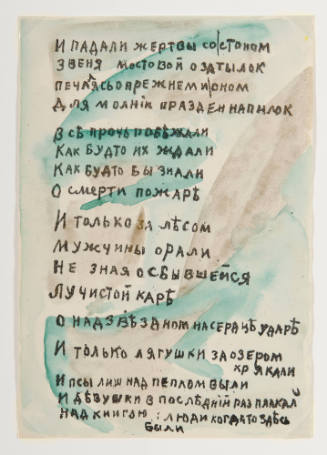 И ПАДАЛИ ЖЕРТВЫ СО СТОНОМ
ЗВЕНЯ МОСТОВОЙ О ЗАТЫЛОК
ПЕЧАЛЯСЬ О ПРЕЖНЕМ ИОНОМ
ДЛЯ МОЛНІИ РАЗДЕН НАПЫЛОК
ВСѢ ПРОЧЬ ПОБѢЖАЛИ
КАК БУДТО ИХ ЖДАЛИ
КАК БУДТО БЫ ЗНАЛИ
О СМЕРТИ ПОЖАРѢ
И ТОЛЬКО ЗА ЛѢСОМ
МУЖЧИНЫ ОРАЛИ
НЕ ЗНАЯ О СБЫВШЕЙСЯ
ЛУЧИСТОЙ КАРѢ
О НАДЗВѢЗДНОМ НА СЕРДЦѢ УДАРѢ
И ТОЛЬКО ЛЯГУШКИ ЗА ОЗЕРОМ
КРЯКАЛИ
И ПСЫ ЛИШ НАД ПЕПЛОМ ВЫЛИ
И ДѢВУШКИ В ПОСЛѢДНІЙ РАЗ ПЛАКАЛИ
НАД КНИГОЮ: ЛЮДИ КОГДАТО ЗДѢСЬ
БЫЛИ